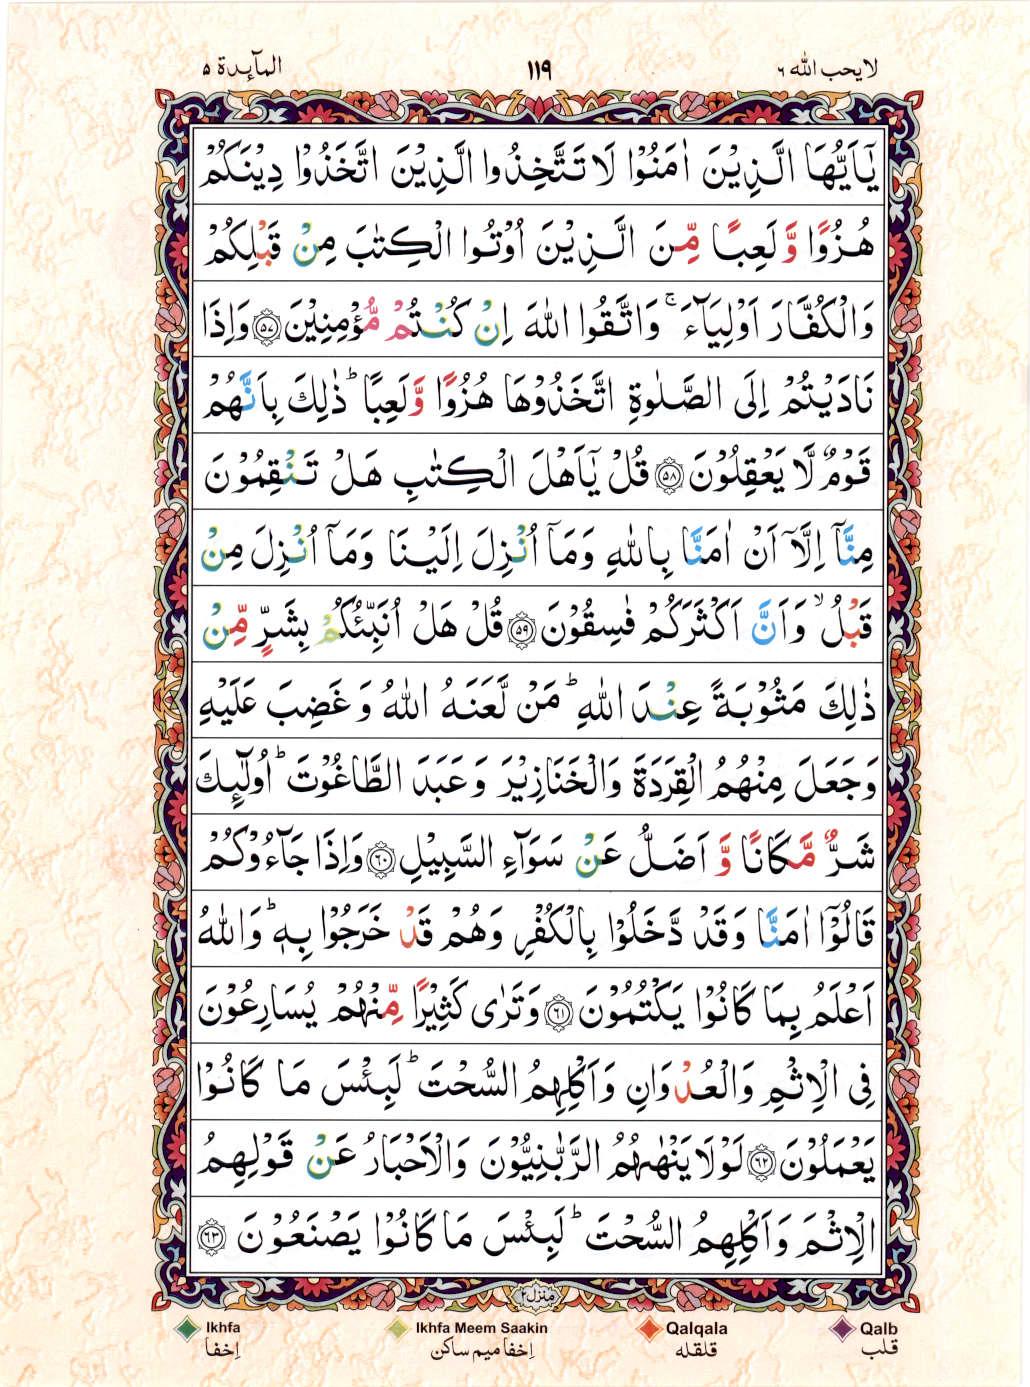 المآىٕدة ۵ ١١٩ لا یحب الله ٦
يٰۤاَيُّهَا الَّذِيْنَ اٰمَنُوْا لَا تَتَّخِذُوا الَّذِيْنَ اتَّخَذُوْا دِيْنَكُمْ
هُزُوًا وَّ لَعِبًا مِّنَ الَّذِيْنَ اُوْتُوا الْكِتٰبَ مِنْ قَبْلِكُمْ
وَالْكُفَّارَ اَوْلِيَآءَ ۚ وَاتَّقُوا اللّٰهَ اِنْ كُنْتُمْ مُّؤْمِنِيْنَ ﴿۵۷﴾ وَاِذَا
نَادَيْتُمْ اِلَى الصَّلٰوةِ اتَّخَذُوْهَا هُزُوًا وَّلَعِبًا ؕ ذٰلِكَ بِاَنَّهُمْ
قَوْمٌ لَّا يَعْقِلُوْنَ ﴿۵۸﴾ قُلْ يٰۤاَهْلَ الْكِتٰبِ هَلْ تَنْقِمُوْنَ
مِنَّاۤ اِلَّاۤ اَنْ اٰمَنَّا بِاللّٰهِ وَمَاۤ اُنْزِلَ اِلَيْنَا وَمَاۤ اُنْزِلَ مِنْ
قَبْلُ ۙ وَاَنَّ اَكْثَرَكُمْ فٰسِقُوْنَ ﴿۵۹﴾ قُلْ هَلْ اُنَبِّئُكُمْ بِشَرٍّ مِّنْ
ذٰلِكَ مَثُوْبَةً عِنْدَ اللّٰهِ ؕ مَنْ لَّعَنَهُ اللّٰهُ وَ غَضِبَ عَلَيْهِ
وَجَعَلَ مِنْهُمُ الْقِرَدَةَ وَالْخَنَازِيْرَ وَعَبَدَ الطَّاغُوْتَ ؕ اُولٰٓئِكَ
شَرٌّ مَّكَانًا وَّ اَضَلُّ عَنْ سَوَآءِ السَّبِيْلِ ﴿٦۰﴾ وَاِذَا جَآءُوْكُمْ
قَالُوْۤا اٰمَنَّا وَقَدْ دَّخَلُوْا بِالْكُفْرِ وَهُمْ قَدْ خَرَجُوْا بِهٖ ؕ وَاللّٰهُ
اَعْلَمُ بِمَا كَانُوْا يَكْتُمُوْنَ ﴿٦۱﴾ وَتَرٰى كَثِيْرًا مِّنْهُمْ يُسَارِعُوْنَ
فِى الْاِثْمِ وَالْعُدْوَانِ وَاَكْلِهِمُ السُّحْتَ ؕ لَبِئْسَ مَا كَانُوْا
يَعْمَلُوْنَ ﴿٦۲﴾ لَوْلَا يَنْهٰىهُمُ الرَّبّٰنِيُّوْنَ وَالْاَحْبَارُ عَنْ قَوْلِهِمُ
الْاِثْمَ وَاَكْلِهِمُ السُّحْتَ ؕ لَبِئْسَ مَا كَانُوْا يَصْنَعُوْنَ ﴿٦۳﴾
منزل ۲
Ikhfa Ikhfa Meem Saakin Qalqala Qalb
اِخفا اِخفا میم ساکن قلقله قلب